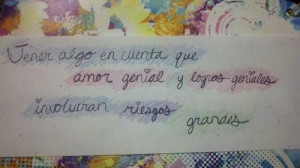 Tener algo en cuenta que
amor genial y logros geniales
involucran riesgos
grandes